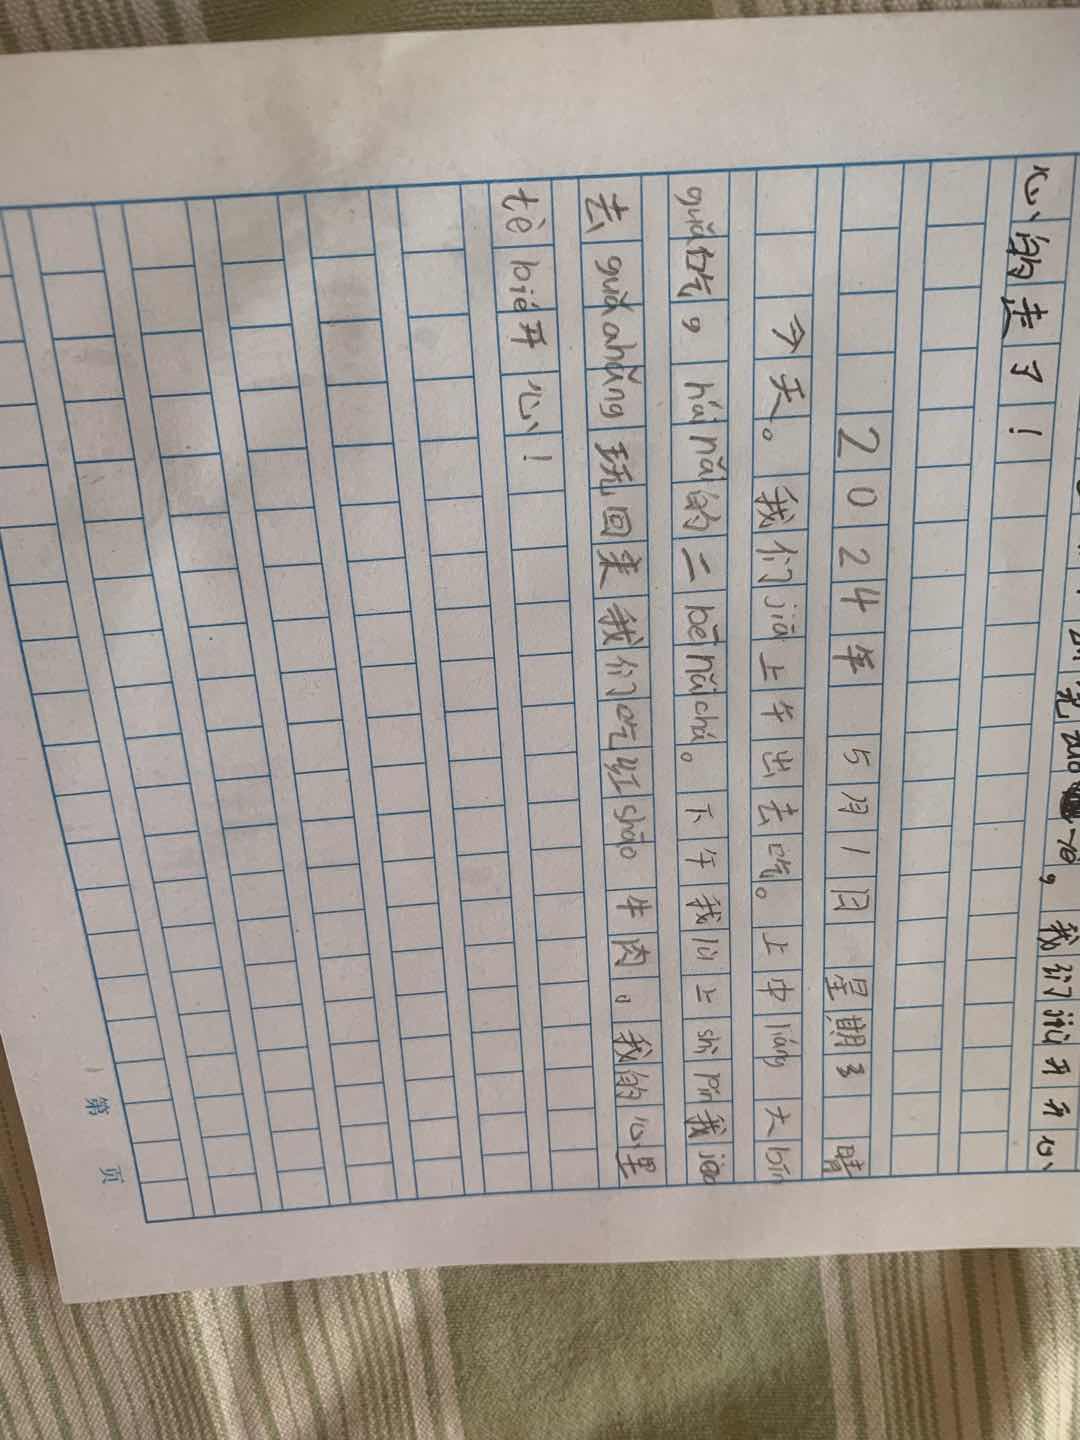 完zuo
我们就开开心
心的走了！
2024年 5月1日 星期3 晴
今天。我们jiā上午出去吃。上中liáng大bīn
guǎ吃，hái nǎi的二bēi nǎichá。下午我们上shì pín我jiā
去guǎ ahǎng玩回来我们吃红shāo牛肉。我的心里
tè bié开心！
第 页